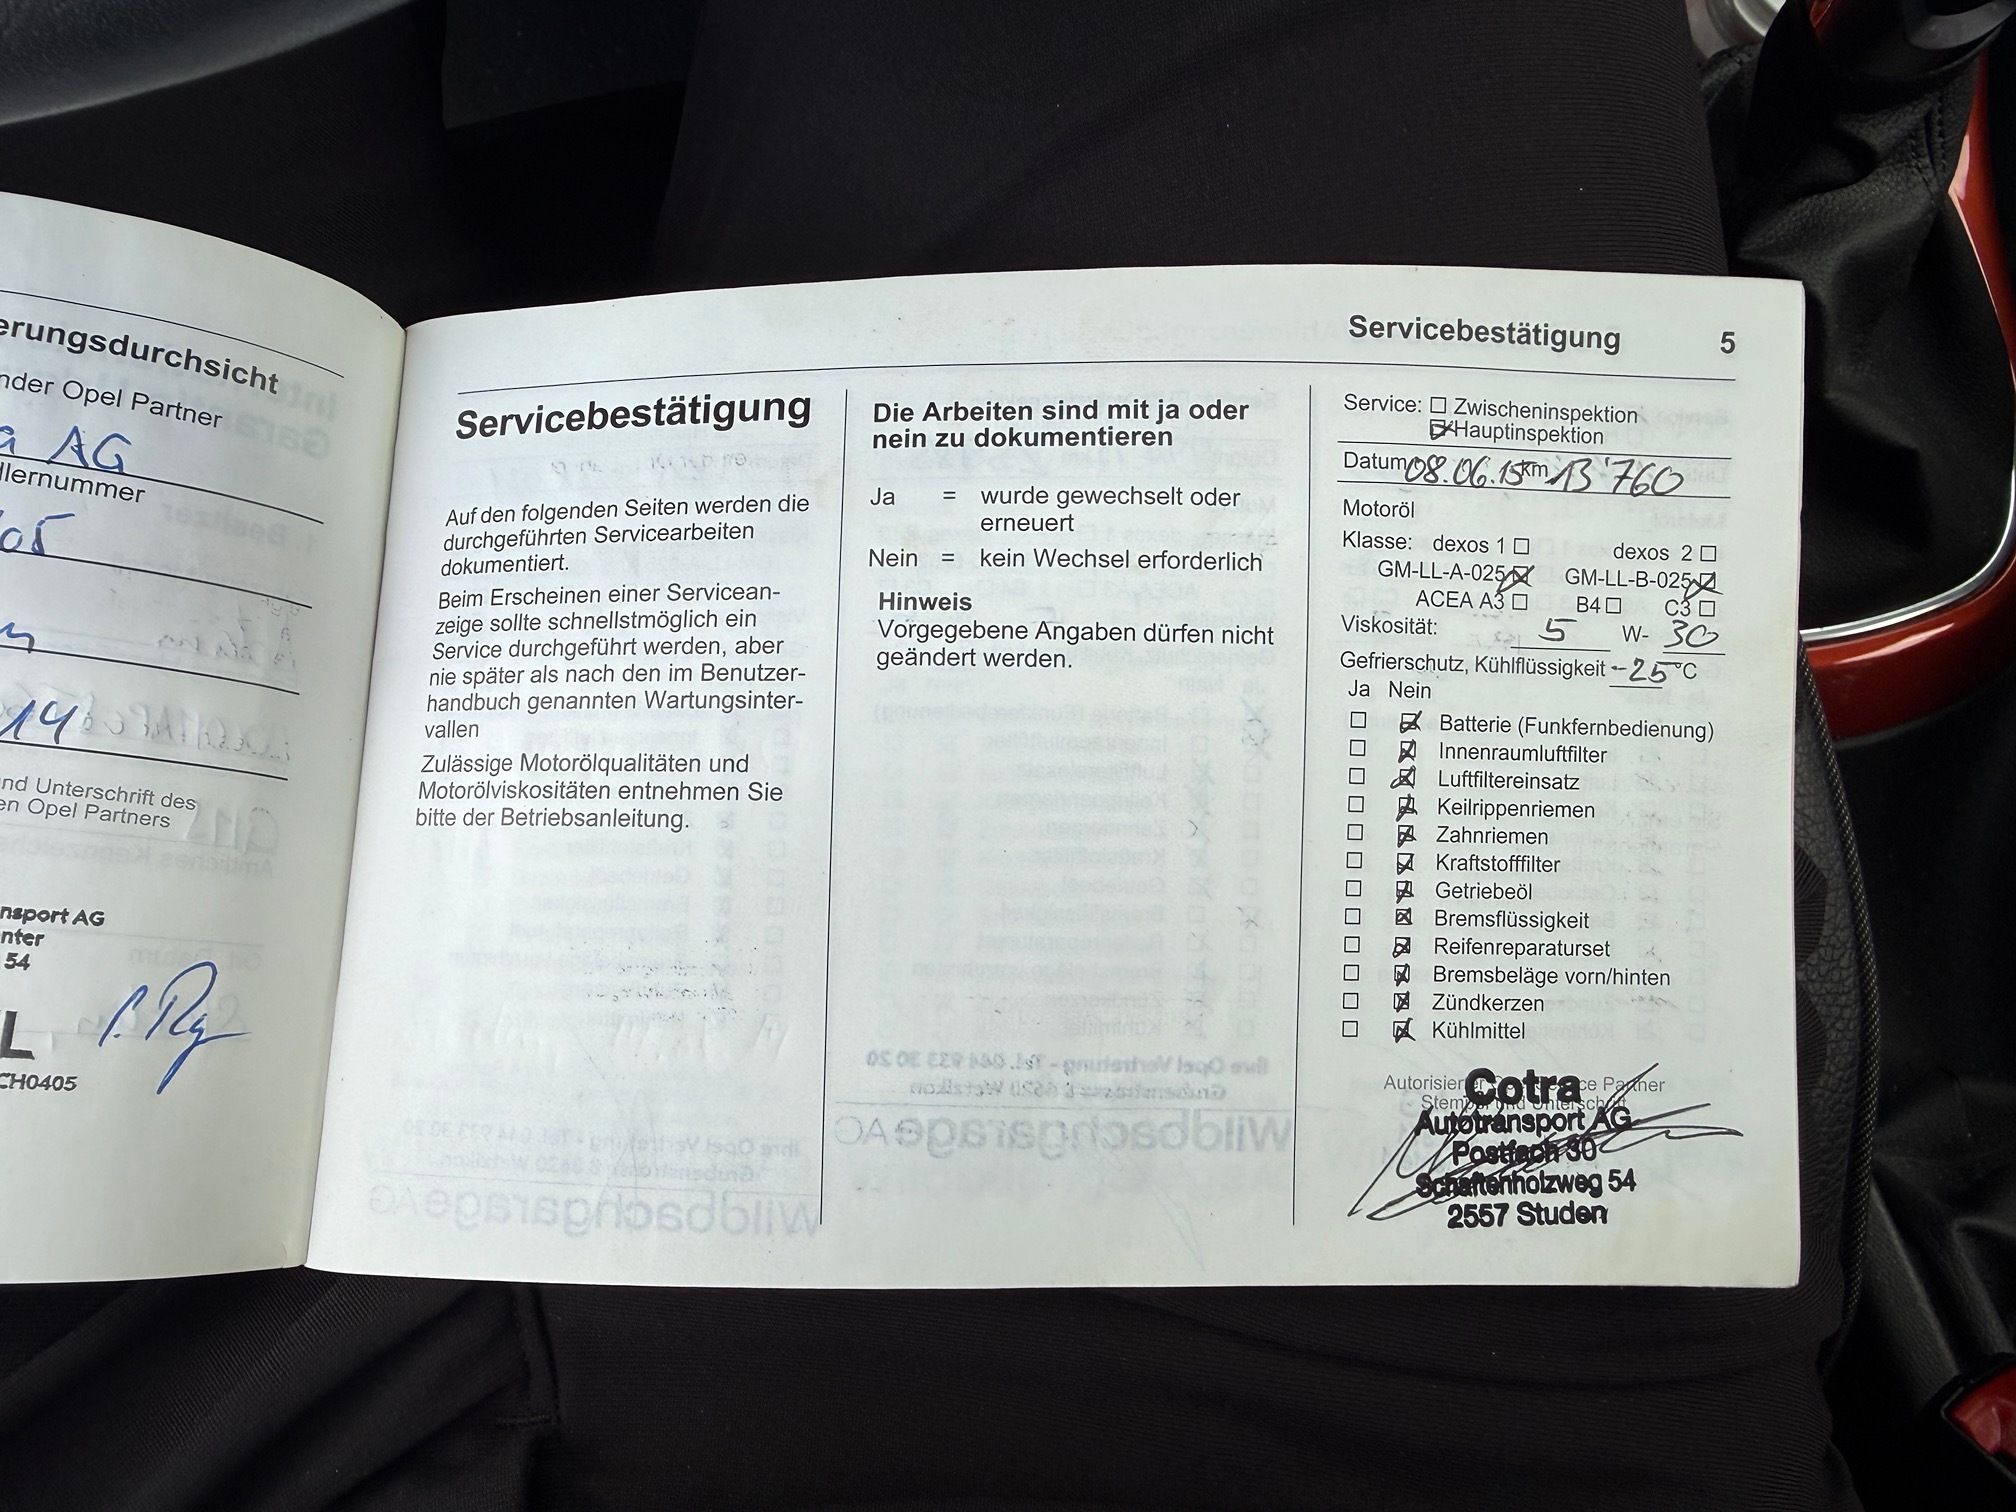 erungsdurchsicht
nder Opel Partner
a AG
llernummer
05
14
nd Unterschrift des
en Opel Partners
nsport AG
nter
54
L
CH0405
Servicebestätigung 5
Servicebestätigung
Auf den folgenden Seiten werden die
durchgeführten Servicearbeiten
dokumentiert.
Beim Erscheinen einer Servicean-
zeige sollte schnellstmöglich ein
Service durchgeführt werden, aber
nie später als nach den im Benutzer-
handbuch genannten Wartungsinter-
vallen
Zulässige Motorölqualitäten und
Motorölviskositäten entnehmen Sie
bitte der Betriebsanleitung.
Die Arbeiten sind mit ja oder
nein zu dokumentieren
Ja = wurde gewechselt oder
erneuert
Nein = kein Wechsel erforderlich
Hinweis
Vorgegebene Angaben dürfen nicht
geändert werden.
Service: ☐ Zwischeninspektion
☒ Hauptinspektion
Datum 08.06.15 km 13'760
Motoröl
Klasse: dexos 1 ☐ dexos 2 ☐
GM-LL-A-025 ☒ GM-LL-B-025 ☒
ACEA A3 ☐ B4 ☐ C3 ☐
Viskosität: 5 W- 30
Gefrierschutz, Kühlflüssigkeit -25 °C
Ja Nein
☐ ☒ Batterie (Funkfernbedienung)
☐ ☒ Innenraumluftfilter
☐ ☒ Luftfiltereinsatz
☐ ☒ Keilrippenriemen
☐ ☒ Zahnriemen
☐ ☒ Kraftstofffilter
☐ ☒ Getriebeöl
☐ ☒ Bremsflüssigkeit
☐ ☒ Reifenreparaturset
☐ ☒ Bremsbeläge vorn/hinten
☐ ☒ Zündkerzen
☐ ☒ Kühlmittel
Autorisierter Opel Service Partner
Stempel und Unterschrift
Cotra
Autotransport AG
Postfach 30
Schaftenholzweg 54
2557 Studen